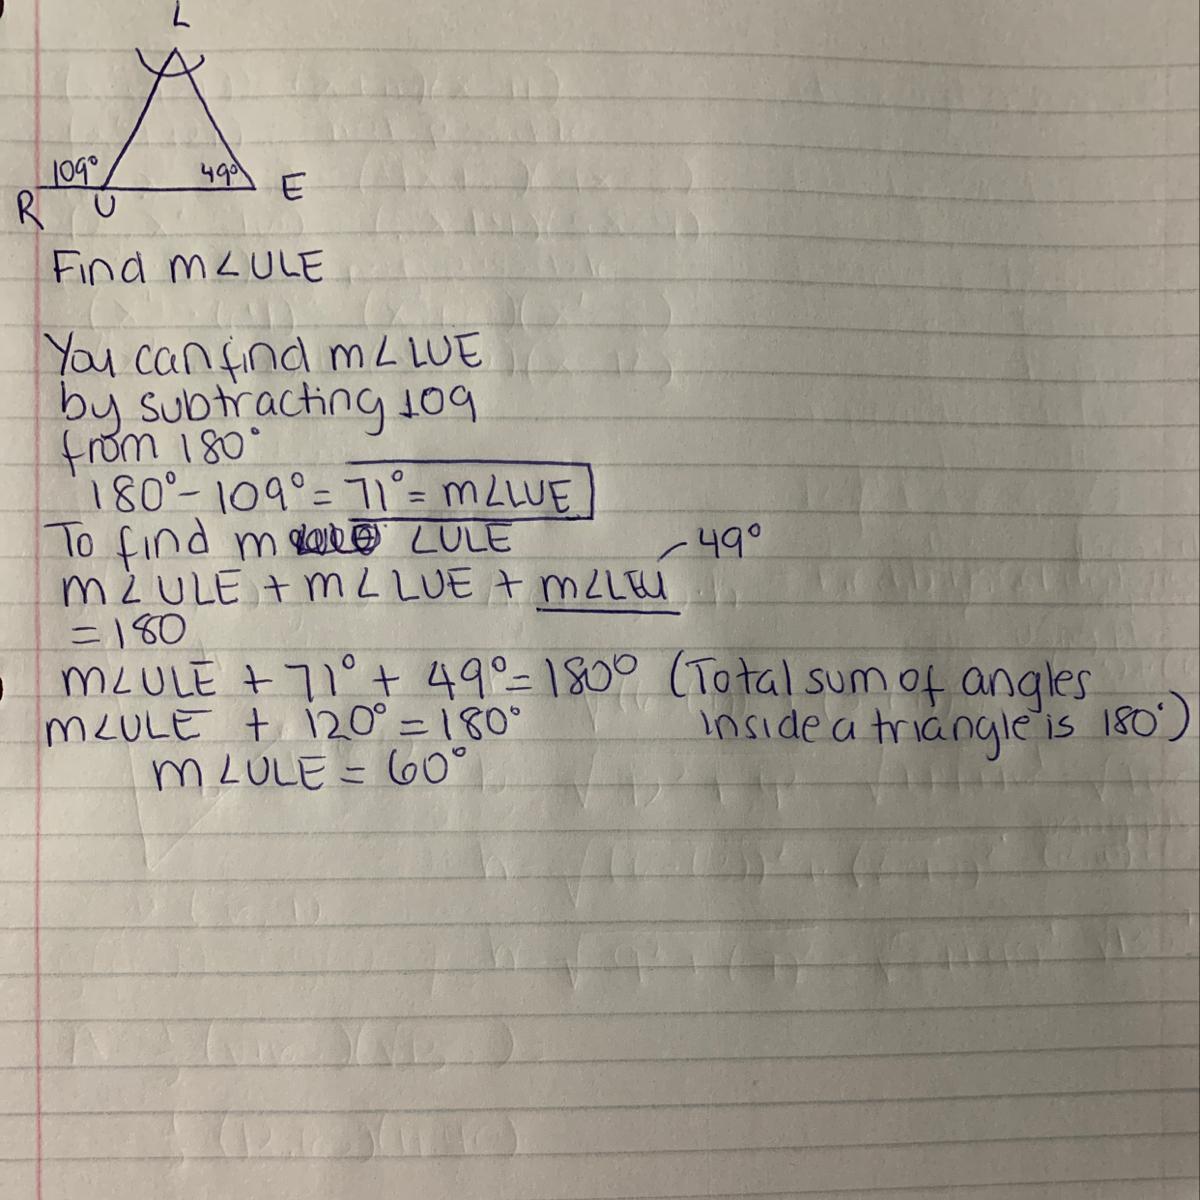 L
109°
49°
R
U
E
Find m∠ULE
You can find m∠LUE
by subtracting 109
from 180°
180° - 109° = 71° = m∠LUE
To find m ∠ULE
49°
m∠ULE + m∠LUE + m∠LEU
= 180
m∠ULE + 71° + 49° = 180° (Total sum of angles
m∠ULE + 120° = 180° inside a triangle is 180°)
m∠ULE = 60°